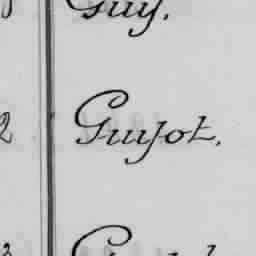 Guy.
Guyot.